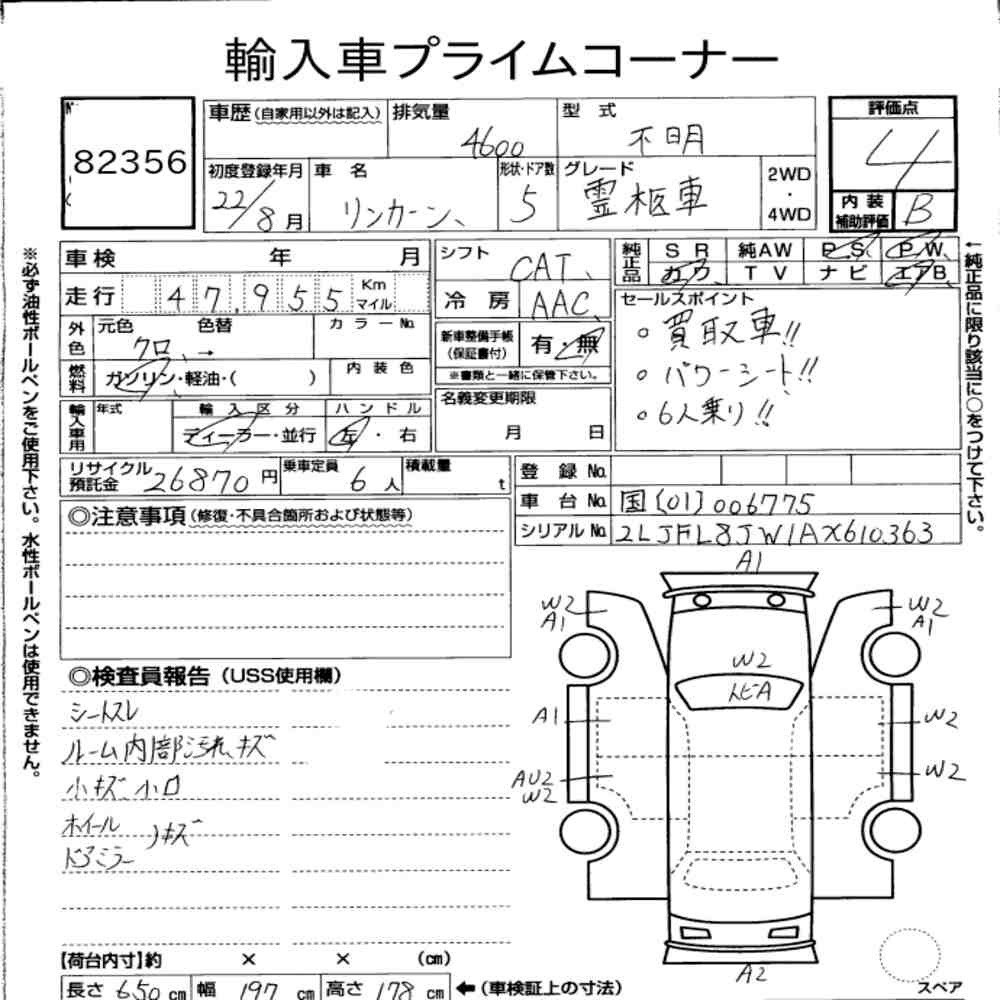 輸入車プライムコーナー
82356
車歴 (自家用以外は記入) 排気量 4600 型 式 不明
初度登録年月 22/8月 車 名 リンカーン 形状・ドア数 5 グレード 霊柩車 2WD ・ 4WD
評価点 4
内装補助評価 B
車検 年 月
走行 47,955 Km マイル
外色 元色 クロ → 色替 カラーNo.
燃料 ガソリン・軽油・( ) 内装色
輸入車用 年式 輸入区分 ディーラー・並行 ハンドル 左・右
シフト CAT
冷房 AAC
新車整備手帳 (保証書付) 有・無
※書類と一緒に保管下さい。
名義変更期限
月 日
純正品 SR 純AW P.S P.W
カワ TV ナビ エアB
セールスポイント
○買取車!!
○パワーシート!!
○6人乗り!!
←純正品に限り該当に○をつけて下さい。
リサイクル預託金 26870円 乗車定員 6人 積載量 t
登録No.
車台No. 国(01)006775
シリアルNo. 2LJFL8JW1AX610363
◎注意事項 (修復・不具合箇所および状態等)
◎検査員報告 (USS使用欄)
シートスレ
ルーム内部汚れ、キズ
小キズ 小凹
ホイール
ドアミラー 小キズ
A1
W2
A1
W2
A1
W2
トビA
A1
W2
AU2
W2
W2
A2
スペア
【荷台内寸】約 × × (cm)
長さ 650 cm 幅 197 cm 高さ 178 cm ←(車検証上の寸法)
※必ず油性ボールペンをご使用下さい。水性ボールペンは使用できません。